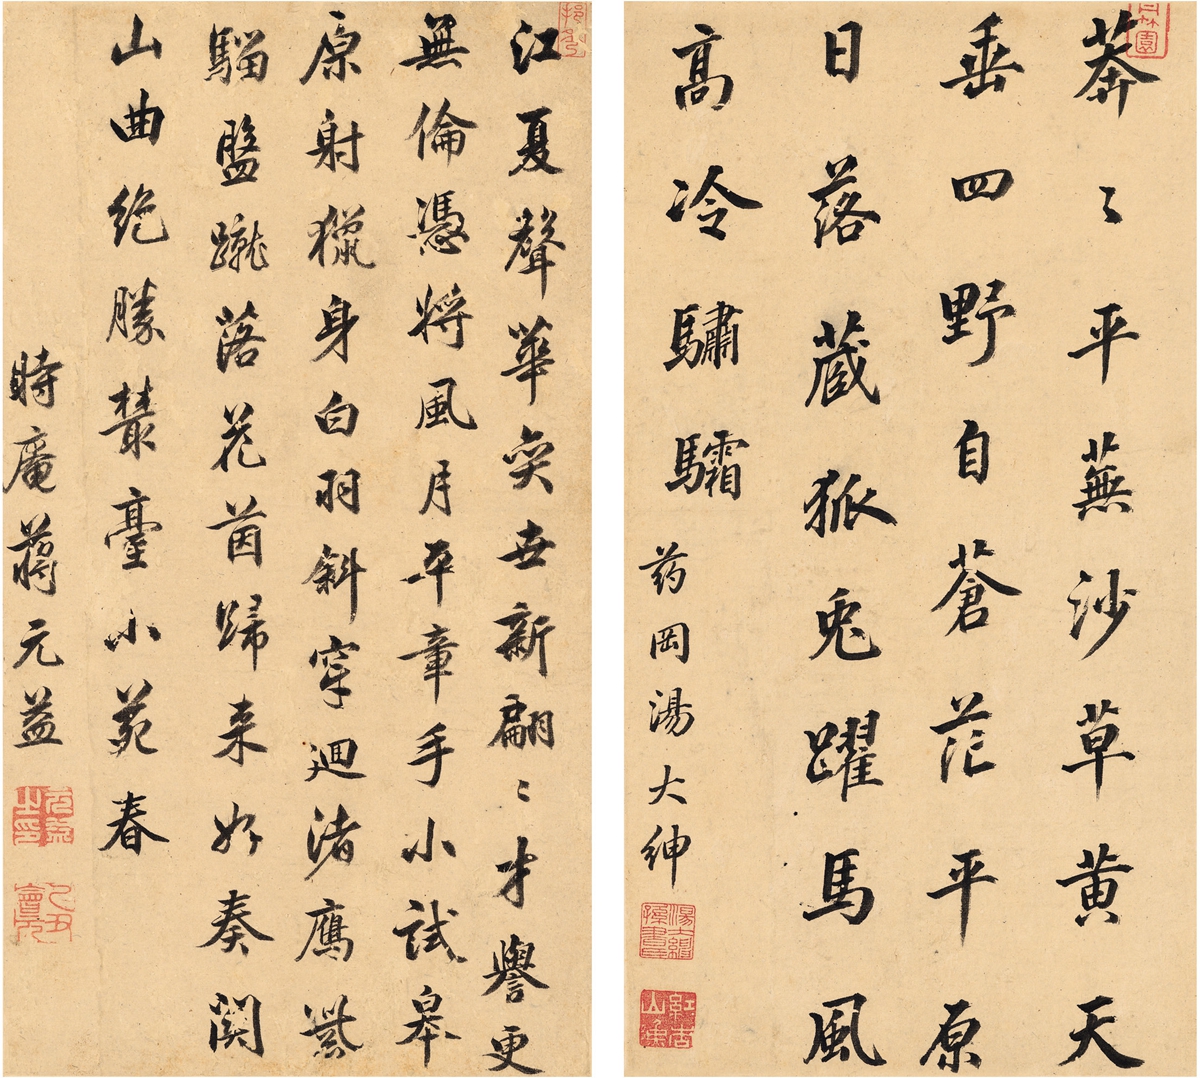 莽〻平蕪沙草黄天
垂四野自蒼茫平原
日落蔵狐兎躍馬風
高冷驌驦
药岡湯大紳
江夏聲華奕世新翩〻才譽更
無倫憑將風月平章手小試皋
原射獵身白羽斜穿迴渚鷹紫
騮盤蹴落花茵歸来好奏関
山曲絶勝叢臺小苑春
時庵蔣元益